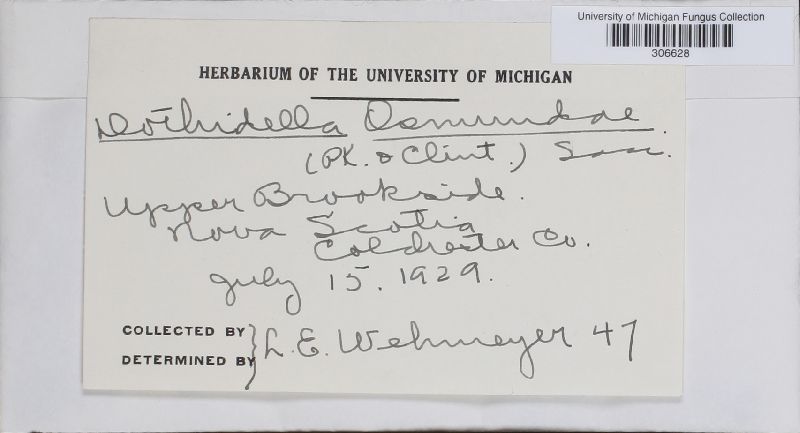 University of Michigan Fungus Collection
306628
HERBARIUM OF THE UNIVERSITY OF MICHIGAN
Dothidella Osmundae
(Pk. & Clint.) Sacc.
Upper Brookside.
Nova Scotia
Colchester Co.
July 15. 1929.
COLLECTED BY
DETERMINED BY
L. E. Wehmeyer 47